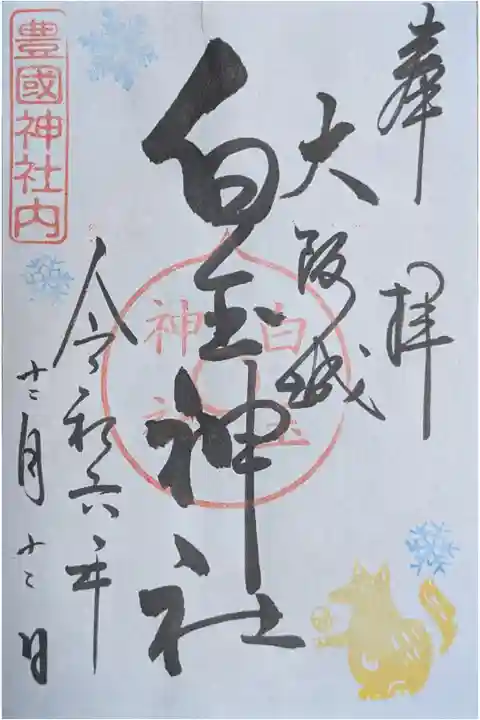 奉拝
大阪城
白玉神社
白玉神社
令和六年
十二月十二日
豊國神社内